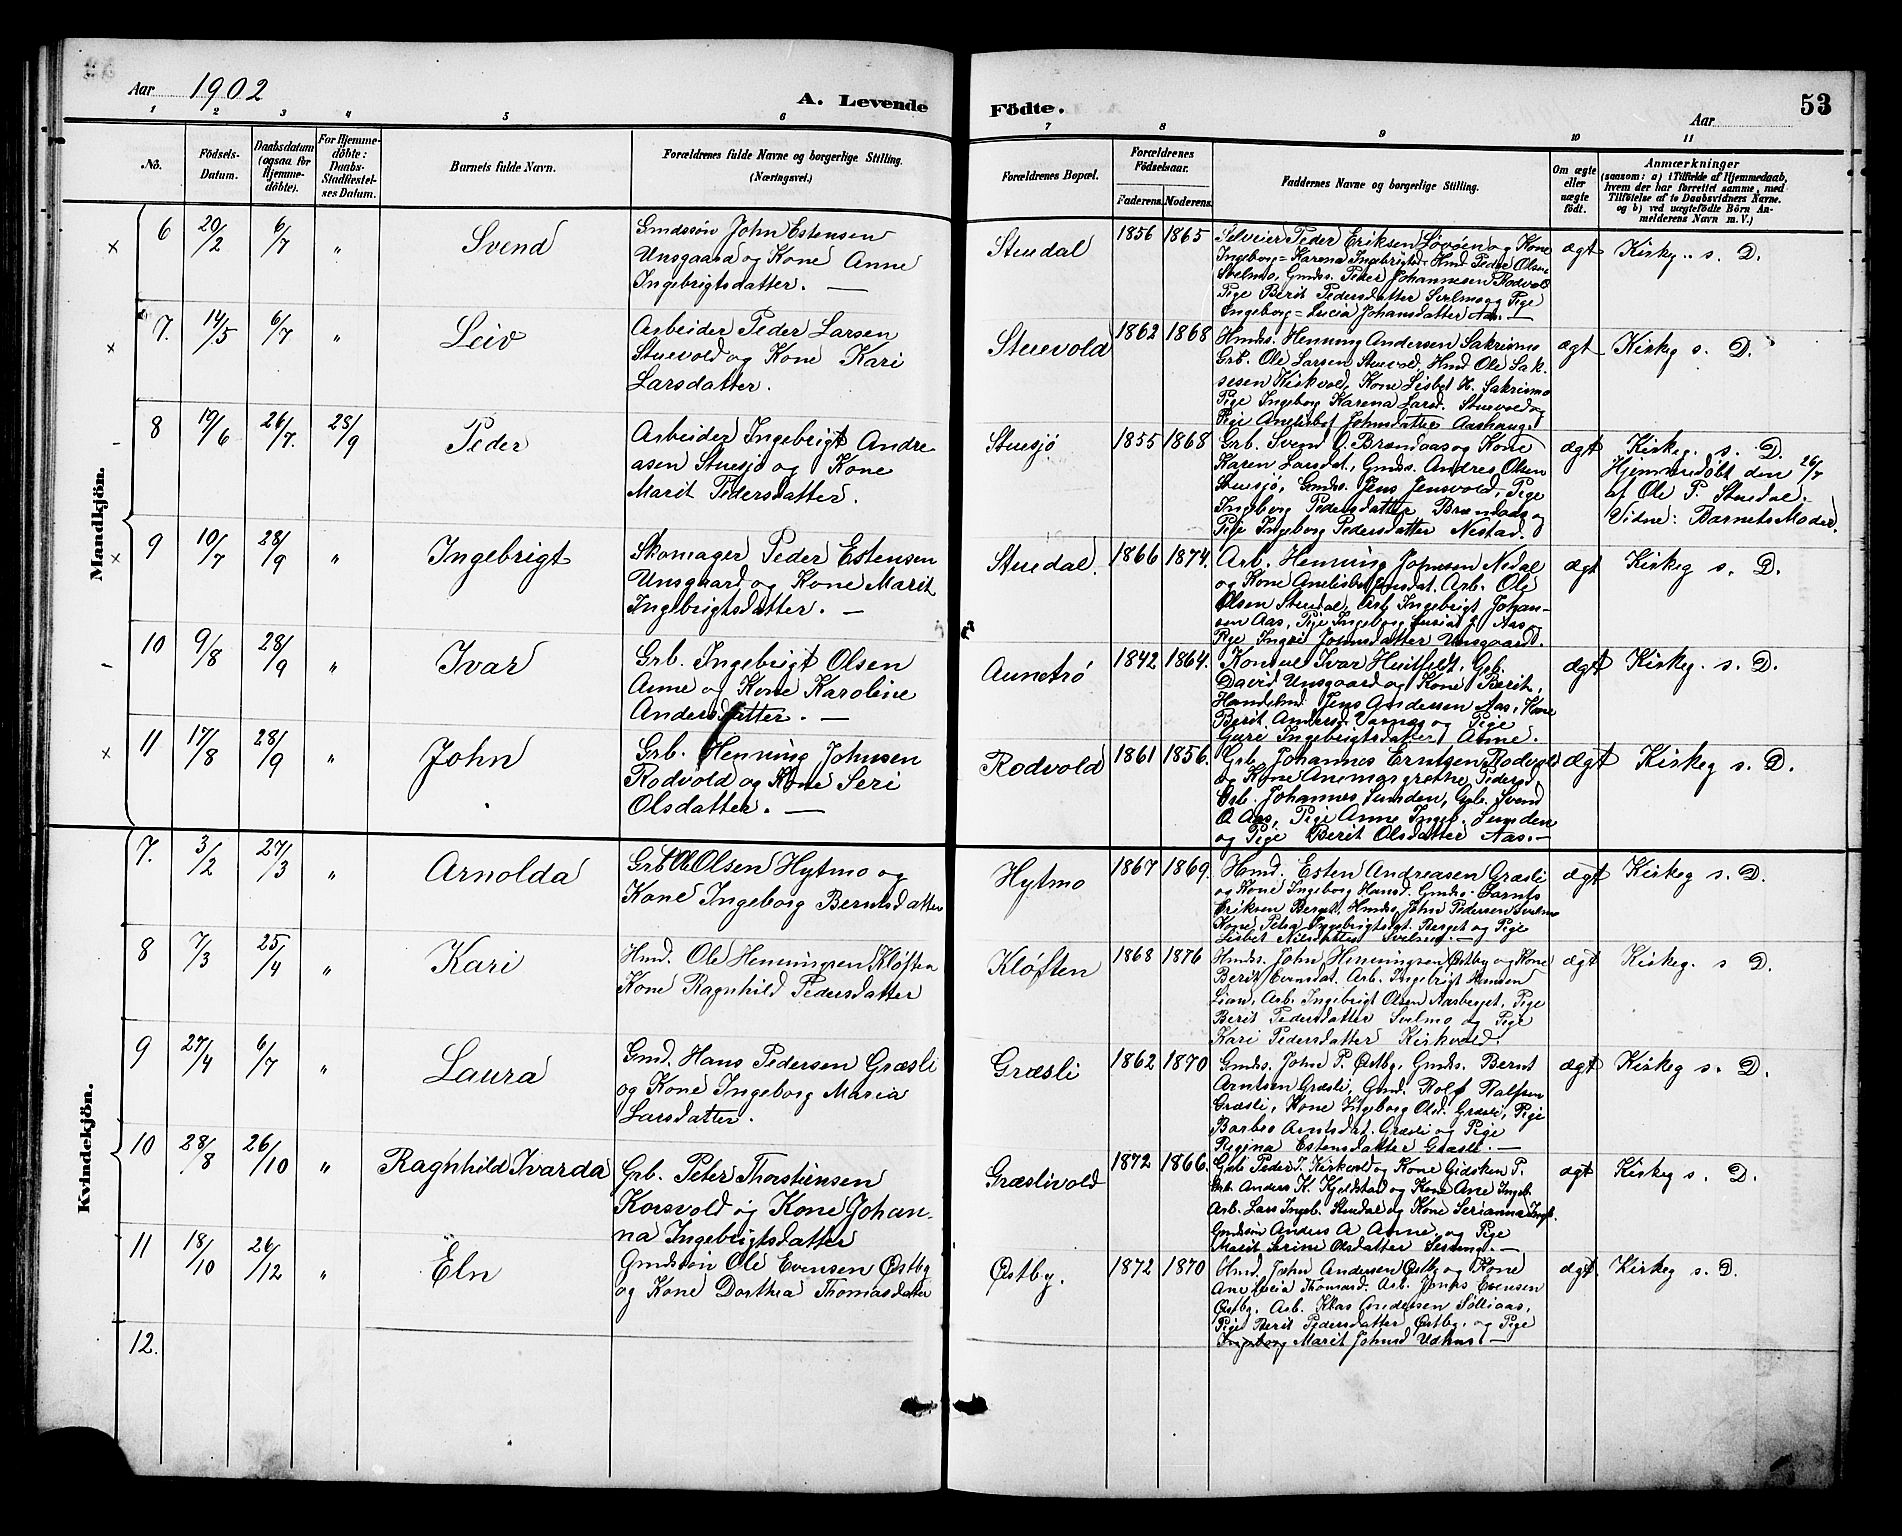 Aar 1902
A. Levende
Födte.
53
Aar
1 2 3 4 5 6 7 8 9 10 11
No.
Födsels-
Datum.
Daabsdatum
(ogsaa for
Hjemme-
döbte).
For Hjemme-
döbte:
Daabs-
Stadfæstel-
ses Datum.
Barnets fulde Navn.
Forældrenes fulde Navne og borgerlige Stilling.
(Næringsvei.)
Forældrenes Bopæl.
Forældrenes
Födselsaar.
Faderens. Moderens.
Faddernes Navne og borgerlige Stilling.
Om ægte
eller
uægte
födt.
Anmærkninger
(saasom: a) i Tilfælde af Hjemmedaab,
hvem der har forrettet samme, med
Tilföielse af to Daabsvidners Navne.
og b) ved uægtefödte Börn An-
melderens Navn m. V.)
Mandkjön.
6 20/2 6/7 " Svend
Gmdssön John Estensen
Unsgaard og Kone Anne
Ingebrigtsdatter. —
Stuedal 1856 1865
Selveier Peder Eriksen Løvøen og Kone
Ingeborg=Karena Ingebrigtsd. Hmd Peder Olsen
Svelmo, Gmds. Peder Johannesen Rodvold
Pige Berit Pedersdatter Svelmo og Pige
Ingeborg=Lucia Johansdatter Aas. —
ægt Kirkeg. s. D.
7. 14/5 6/7 " Leiv
Arbeider Peder Larsen
Stuevold og Kone Kari
Larsdatter.
Stuevold 1862 1868
Hmds. Henning Andersen Sakrismo
Grb. Ole Larsen Stuevold, Hmd Ole Sak-
sesen Kirkvold, Kone Lisbet H. Sakrismo
Pige Ingeborg Karena Larsd. Stuevold og
Pige Anelisbet Johnsdatter Aashaug.
ægt Kirkeg s. D.
8 19/6 26/7. 28/9 Peder
Arbeider Ingebrigt Andre-
asen Stuesjø og Kone
Marit Pedersdatter.
Stuesjø 1855 1868
Grb. Svend O. Brændaas og Kone
Karen Larsdat., Gmds. Andres Olsen
Stuesjø, Gmds. Jens Jensvold, Pige
Ingeborg Pedersdatter Brændaas og
Pige Ingeborg Pedersdatter Nestad.
ægt Kirkeg. s. D.
Hjemmedøbt den 26/7
af Ole P. Stuedal.
Vidne: Barnets Moder.
9 10/7 28/9 " Ingebrigt
Skomager Peder Estensen
Unsgaard og Kone Marit
Ingebrigtsdatter. —
Stuedal. 1866 1874.
Arb. Henning Johnsen Nedal
og Kone Anelisbet Jensdat. Arb. Ole
Olsen Stuedal, Arb. Ingebrigt Johan-
sen Aas, Pige Ingeborg Lusia J. Aas og
Pige Ingri Johnsdatter Unsgaard.
ægt Kirkeg s. D.
10 9/8 28/9 " Ivar
Grb. Ingebrigt Olsen
Aune og Kone Karoline
Andersdatter. —
Aunetrø 1842 1864.
Konsul Ivar Huitfeldt, Grb.
David Unsgaard og Kone Berit,
Handelmd. Jens Andersen Aas, Kone
Berit Andersd. Varnæs og Pige
Gure Ingebrigtsdatter Aune.
ægt Kirkeg. s. D.
11 17/8 28/9 " John
Grb. Henning Johnsen
Rodvold og Kone Seri
Olsdatter. —
Rodvold 1861 1856.
Grb. Johannes Erntsen Rodvold
og Kone Anemargrethe Pedersd.
Grb. Johannes Lunden, Grb. Svend
O Aas, Pige Anne Ingeb. Lunden
og Pige Berit Olsdatter Aas.—
ægt Kirkeg s. D.
Kvindekjön.
7. 3/2 27/3 " Arnolda
Grb Ole Olsen Hytmo og
Kone Ingeborg Berntsdatter
Hytmo 1867 1869.
Hmd. Esten Andreasen Græsli
og Kone Ingeborg Hansd. Gmds.
Eriksen Berget, Hmds. John Pedersen Svelmo
Kone Petra Ingebrigtsdat. Berget og Pige
Lisbet Nilsdatter Svelmo. —
ægt Kirkeg s. D.
8 7/3 25/4 " Kari
Hmd. Ole Henningsen Kløften
Kone Ragnhild Pedersdatter
Kløften 1868 1876
Hmds. John Henningsen Østby og Kone
Berit Evensdat. Arb. Ingebrigt Hansen
Lian, Arb. Ingebrigt Olsen Aasberget, Pige
Berit Pedersdatter Svelmo og Pige
Kari Pedersdatter Kirkvold.
ægt Kirkeg. s D.
9 27/4 6/7 " Laura
Gmd. Hans Pedersen Græsli
og Kone Ingeborg Maria
Larsdatter.
Græsli 1862 1870
Gmds. John P. Østby, Gmds. Bernt
Arntsen Græsli, Gmd. Rolf Ralfsen
Græsli, Kone Ingeborg Olsd. Græsli, Pige
Barbro Arntsdat. Græsli og Pige
Regina Estensdatter Græsli. —
ægt Kirkeg s. D.
10 28/8 26/10 " Ragnhild Ivarda
Grb. Peter Thorstensen
Korsvold og Kone Johan-
na Ingebrigtsdatter
Græslivold 1872 1866.
Grb. Peder J. Kirkvold og Kone Gidsken P.
Grb. Anders K. Kjeldstad og Kone Ane Ingeb.
Arb. Lars Ingeb. Stuedal og Kone Serianna Ingb.
Gmdssøn Anders A Aune, og Pige
Marit Serine Olsdatter —
ægt Kirkeg s. D.
11 18/10 26/12 " Eln
Gmdssøn Ole Evensen Østby
og Kone Dorthea Thomasdatter
Østby. 1872 1870
Hmd. John Andersen Østby og Kone
Ane Lucia Thomasd. Arb. Jonas Evensen
Østby, Arb. Klas Andersen Sølliaas,
Pige Berit Pedersdatter Østby, og Pige
Ingeborg Marit Johnsd Udhus. —
ægt. Kirkeg s. D.
12.